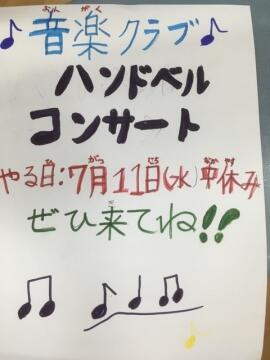 ♪音楽クラブ♪
ハンドベル
コンサート
やる日:7月11日(水)中休み
ぜひ来てね!!